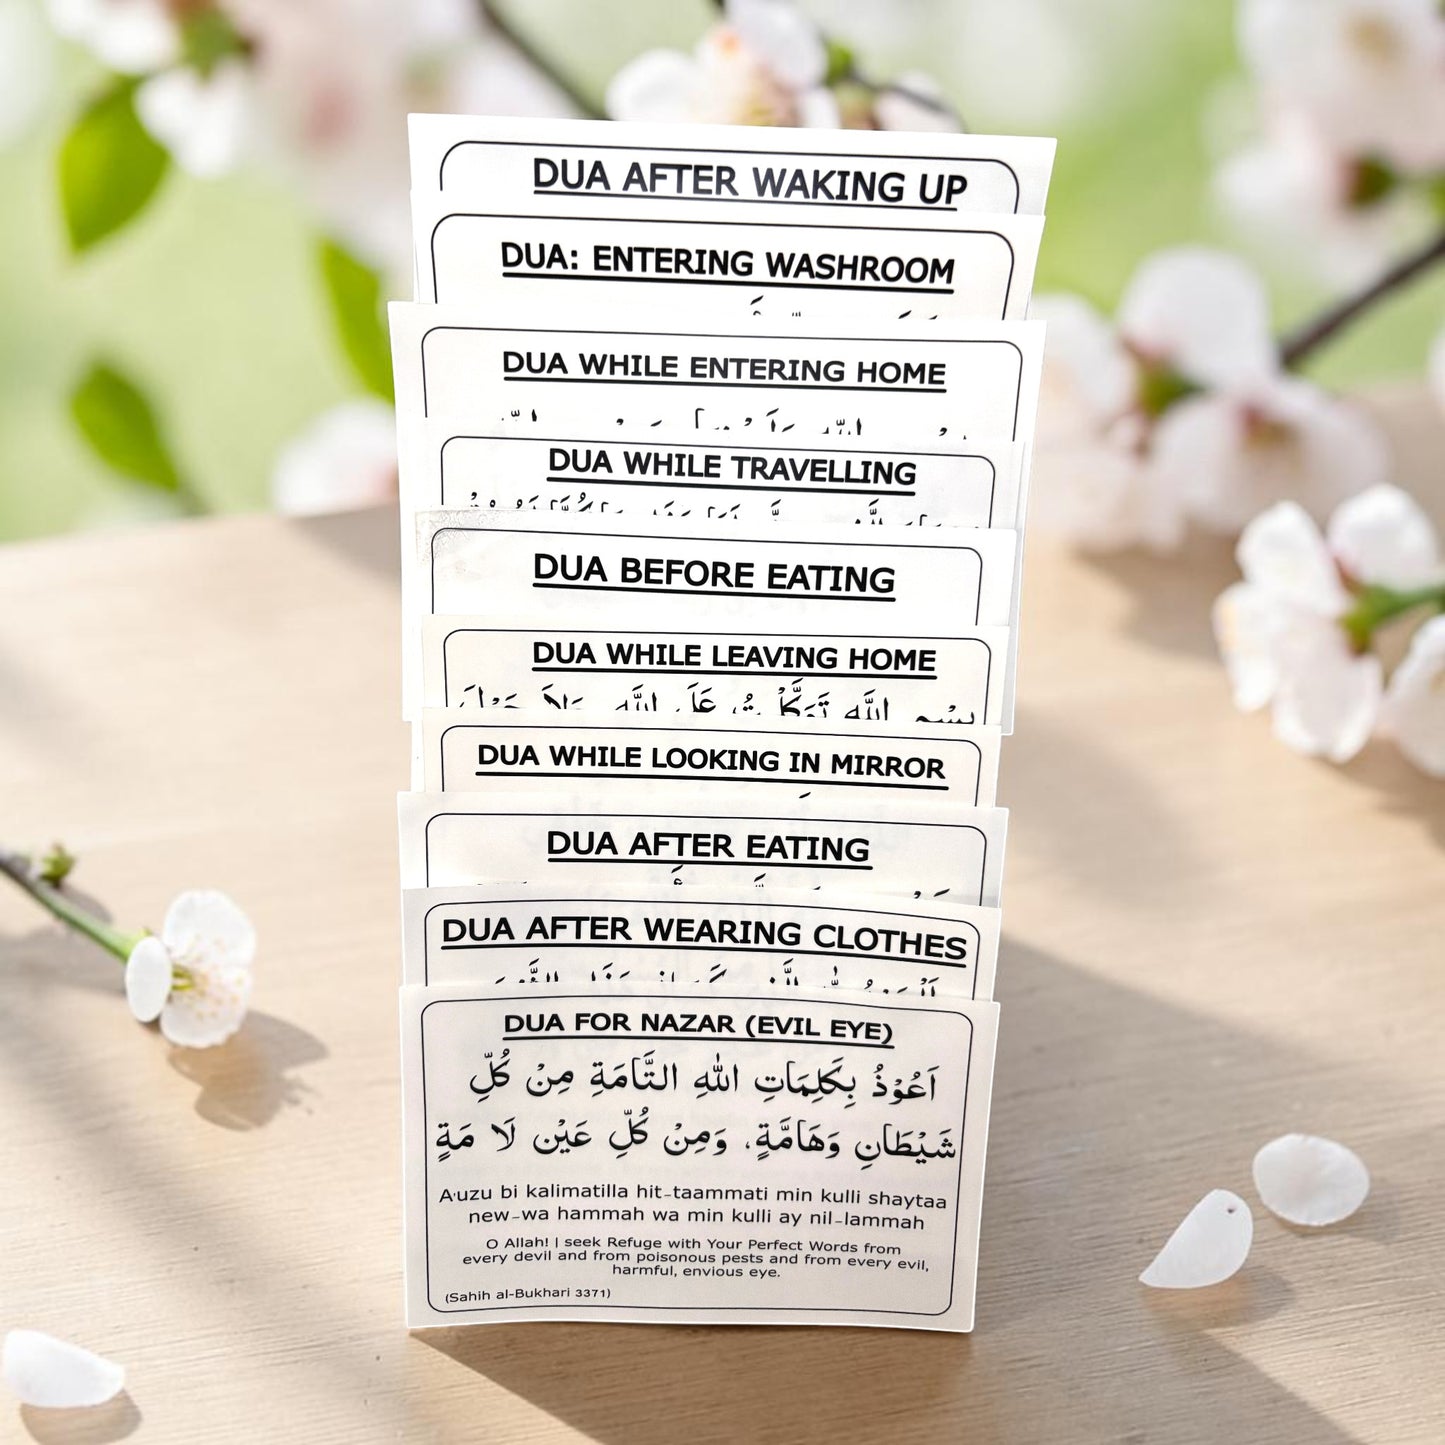 DUA AFTER WAKING UP
DUA: ENTERING WASHROOM
DUA WHILE ENTERING HOME
DUA WHILE TRAVELLING
DUA BEFORE EATING
DUA WHILE LEAVING HOME
بِسْمِ اللَّهِ تَوَكَّلْتُ عَلَى اللَّهِ وَلَا حَوْلَ
DUA WHILE LOOKING IN MIRROR
DUA AFTER EATING
DUA AFTER WEARING CLOTHES
DUA FOR NAZAR (EVIL EYE)
اَعُوْذُ بِكَلِمَاتِ اللّٰهِ التَّامَةِ مِنْ كُلِّ
شَيْطَانِ وَهَامَّةٍ، وَمِنْ كُلِّ عَيْنٍ لَا مَةٍ
A'uzu bi kalimatilla hit-taammati min kulli shaytaa
new-wa hammah wa min kulli ay nil-lammah
O Allah! I seek Refuge with Your Perfect Words from
every devil and from poisonous pests and from every evil,
harmful, envious eye.
(Sahih al-Bukhari 3371)